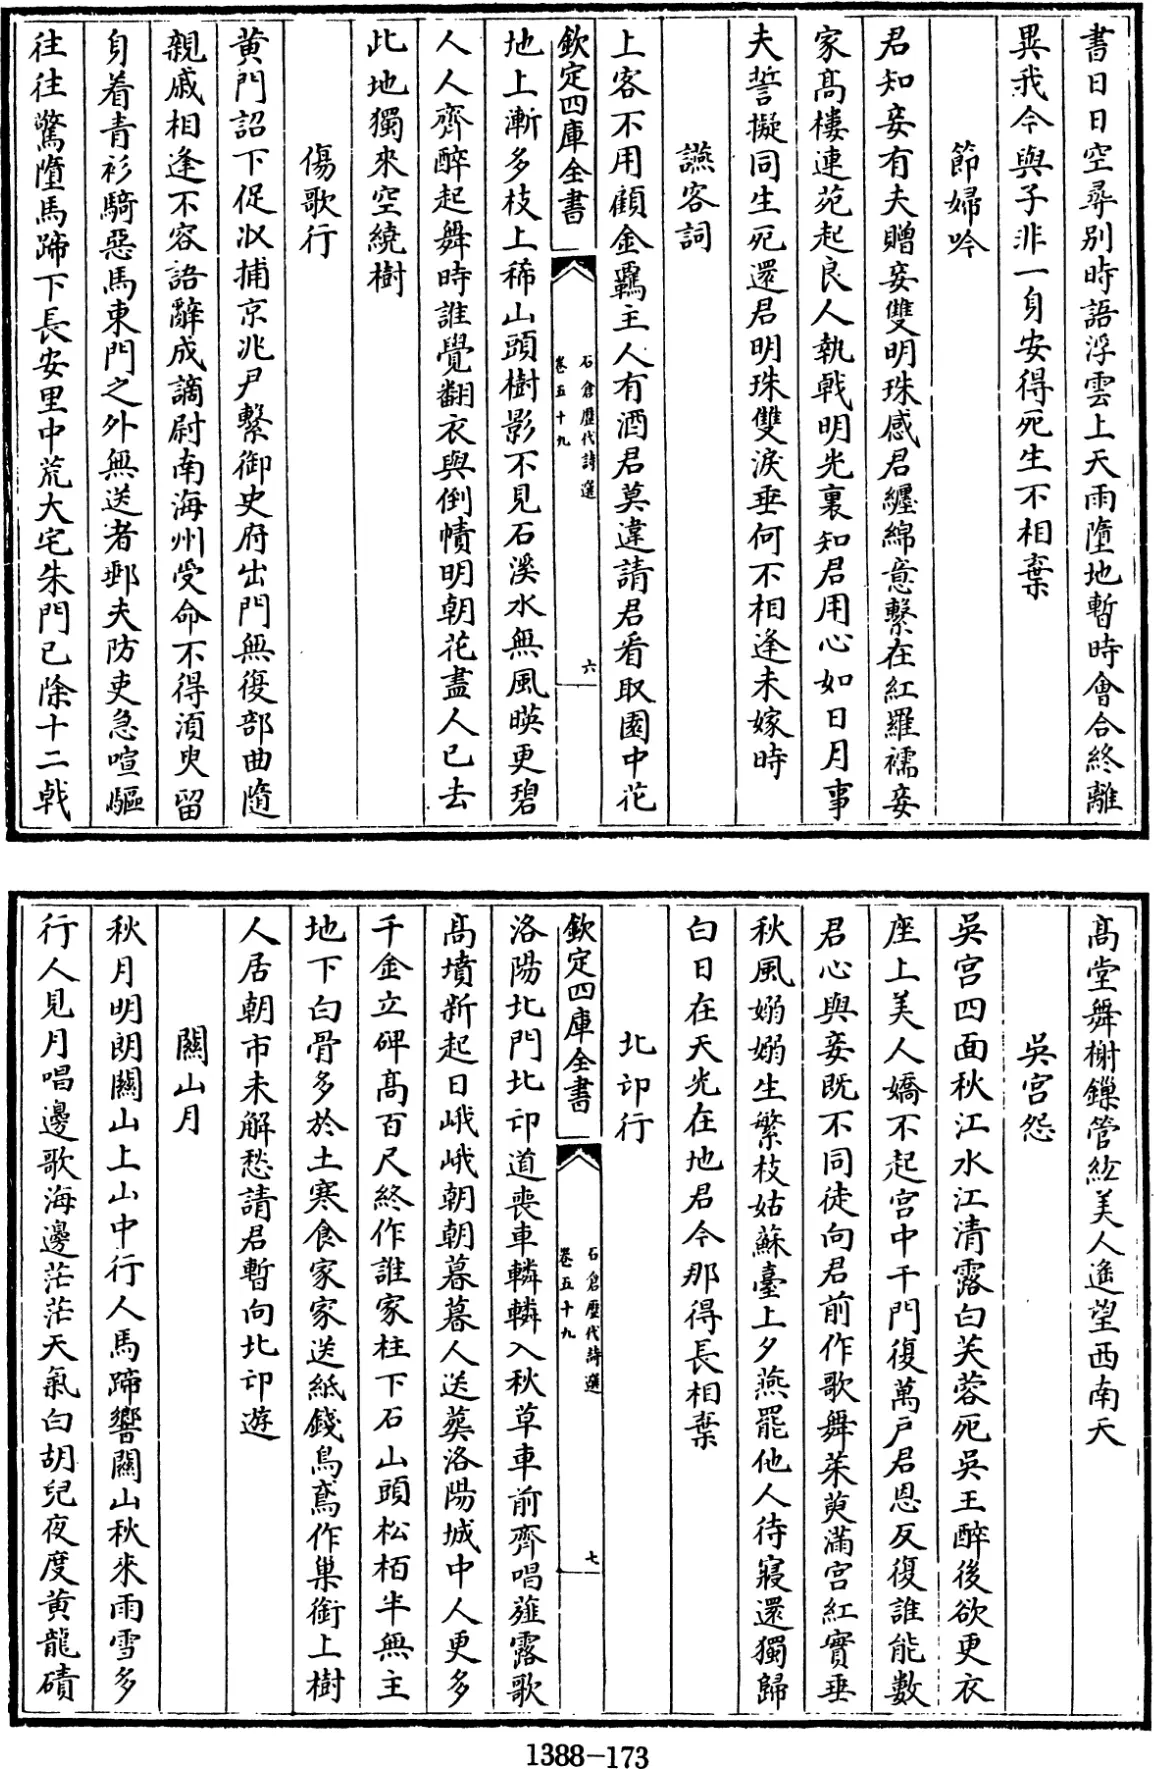 書日日空尋別時語浮雲上天雨墮地暫時會合終離
異我今與子非一身安得死生不相棄
節婦吟
君知妾有夫贈妾雙明珠感君纏綿意繫在紅羅襦妾
家髙樓連苑起良人執㦸明光裏知君用心如日月事
夫誓擬同生死還君明珠雙淚垂何不相逢未嫁時
讌客詞
上客不用顧金覊主人有酒君莫違請君看取園中花
欽定四庫全書
石倉歷代詩選
卷五十九
六
地上漸多枝上稀山頭樹影不見石溪水無風暎更碧
人人齊醉起舞時誰覺翻衣與倒幘明朝花盡人已去
此地獨來空繞樹
傷歌行
黄門詔下促收捕京兆尹繫御史府出門無復部曲隨
親戚相逢不容語辭成謫尉南海州受命不得湏臾留
身着青衫騎惡馬東門之外無送者郵夫防吏急喧驅
往往驚墮馬蹄下長安里中荒大宅朱門已除十二㦸
髙堂舞榭鏁管絃美人遙望西南天
吳宮怨
吳宮四面秋江水江清露白芙蓉死吳王醉後欲更衣
座上美人嬌不起宮中千門復萬戶君恩反復誰能數
君心與妾既不同徒向君前作歌舞茱萸滿宮紅實垂
秋風嫋嫋生繁枝姑蘇臺上夕燕罷他人待寢還獨歸
白日在天光在地君今那得長相棄
北邙行
欽定四庫全書
石倉歷代詩選
卷五十九
七
洛陽北門北邙道喪車轔轔入秋草車前齊唱薤露歌
髙墳新起日峨峨朝朝暮暮人送葬洛陽城中人更多
千金立碑髙百尺終作誰家柱下石山頭松栢半無主
地下白骨多於土寒食家家送紙錢烏鳶作巢銜上樹
人居朝市未解愁請君暫向北邙遊
關山月
秋月明朗關山上山中行人馬蹄響關山秋來雨雪多
行人見月唱邊歌海邊茫茫天氣白胡兒夜度黄龍磧
1388-173